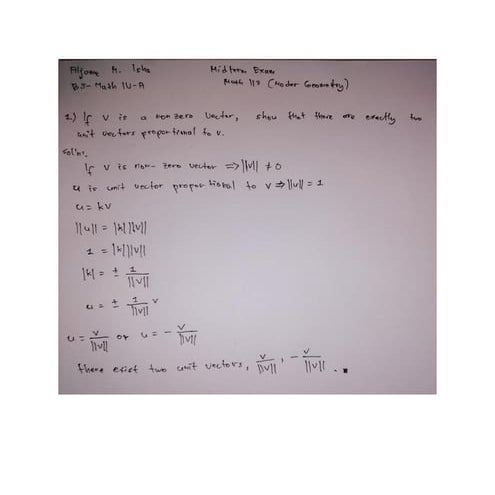 M. Midterm Exam
BS-Math IV-A Math 117 (Moder Geometry)
1.) If v is a nonzero vector, show that there are exactly two
unit vectors proportional to v.
Sol'n:
If v is non-zero vector ⇒ ||v|| ≠ 0
u is unit vector proportional to v ⇒ ||u|| = 1
u = kv
||u|| = |k| ||v||
1 = |k| ||v||
|k| = ± 1/||v||
u = ± 1/||v|| v
u = v/||v|| or u = - v/||v||
there exist two unit vectors, v/||v|| , - v/||v|| . ■